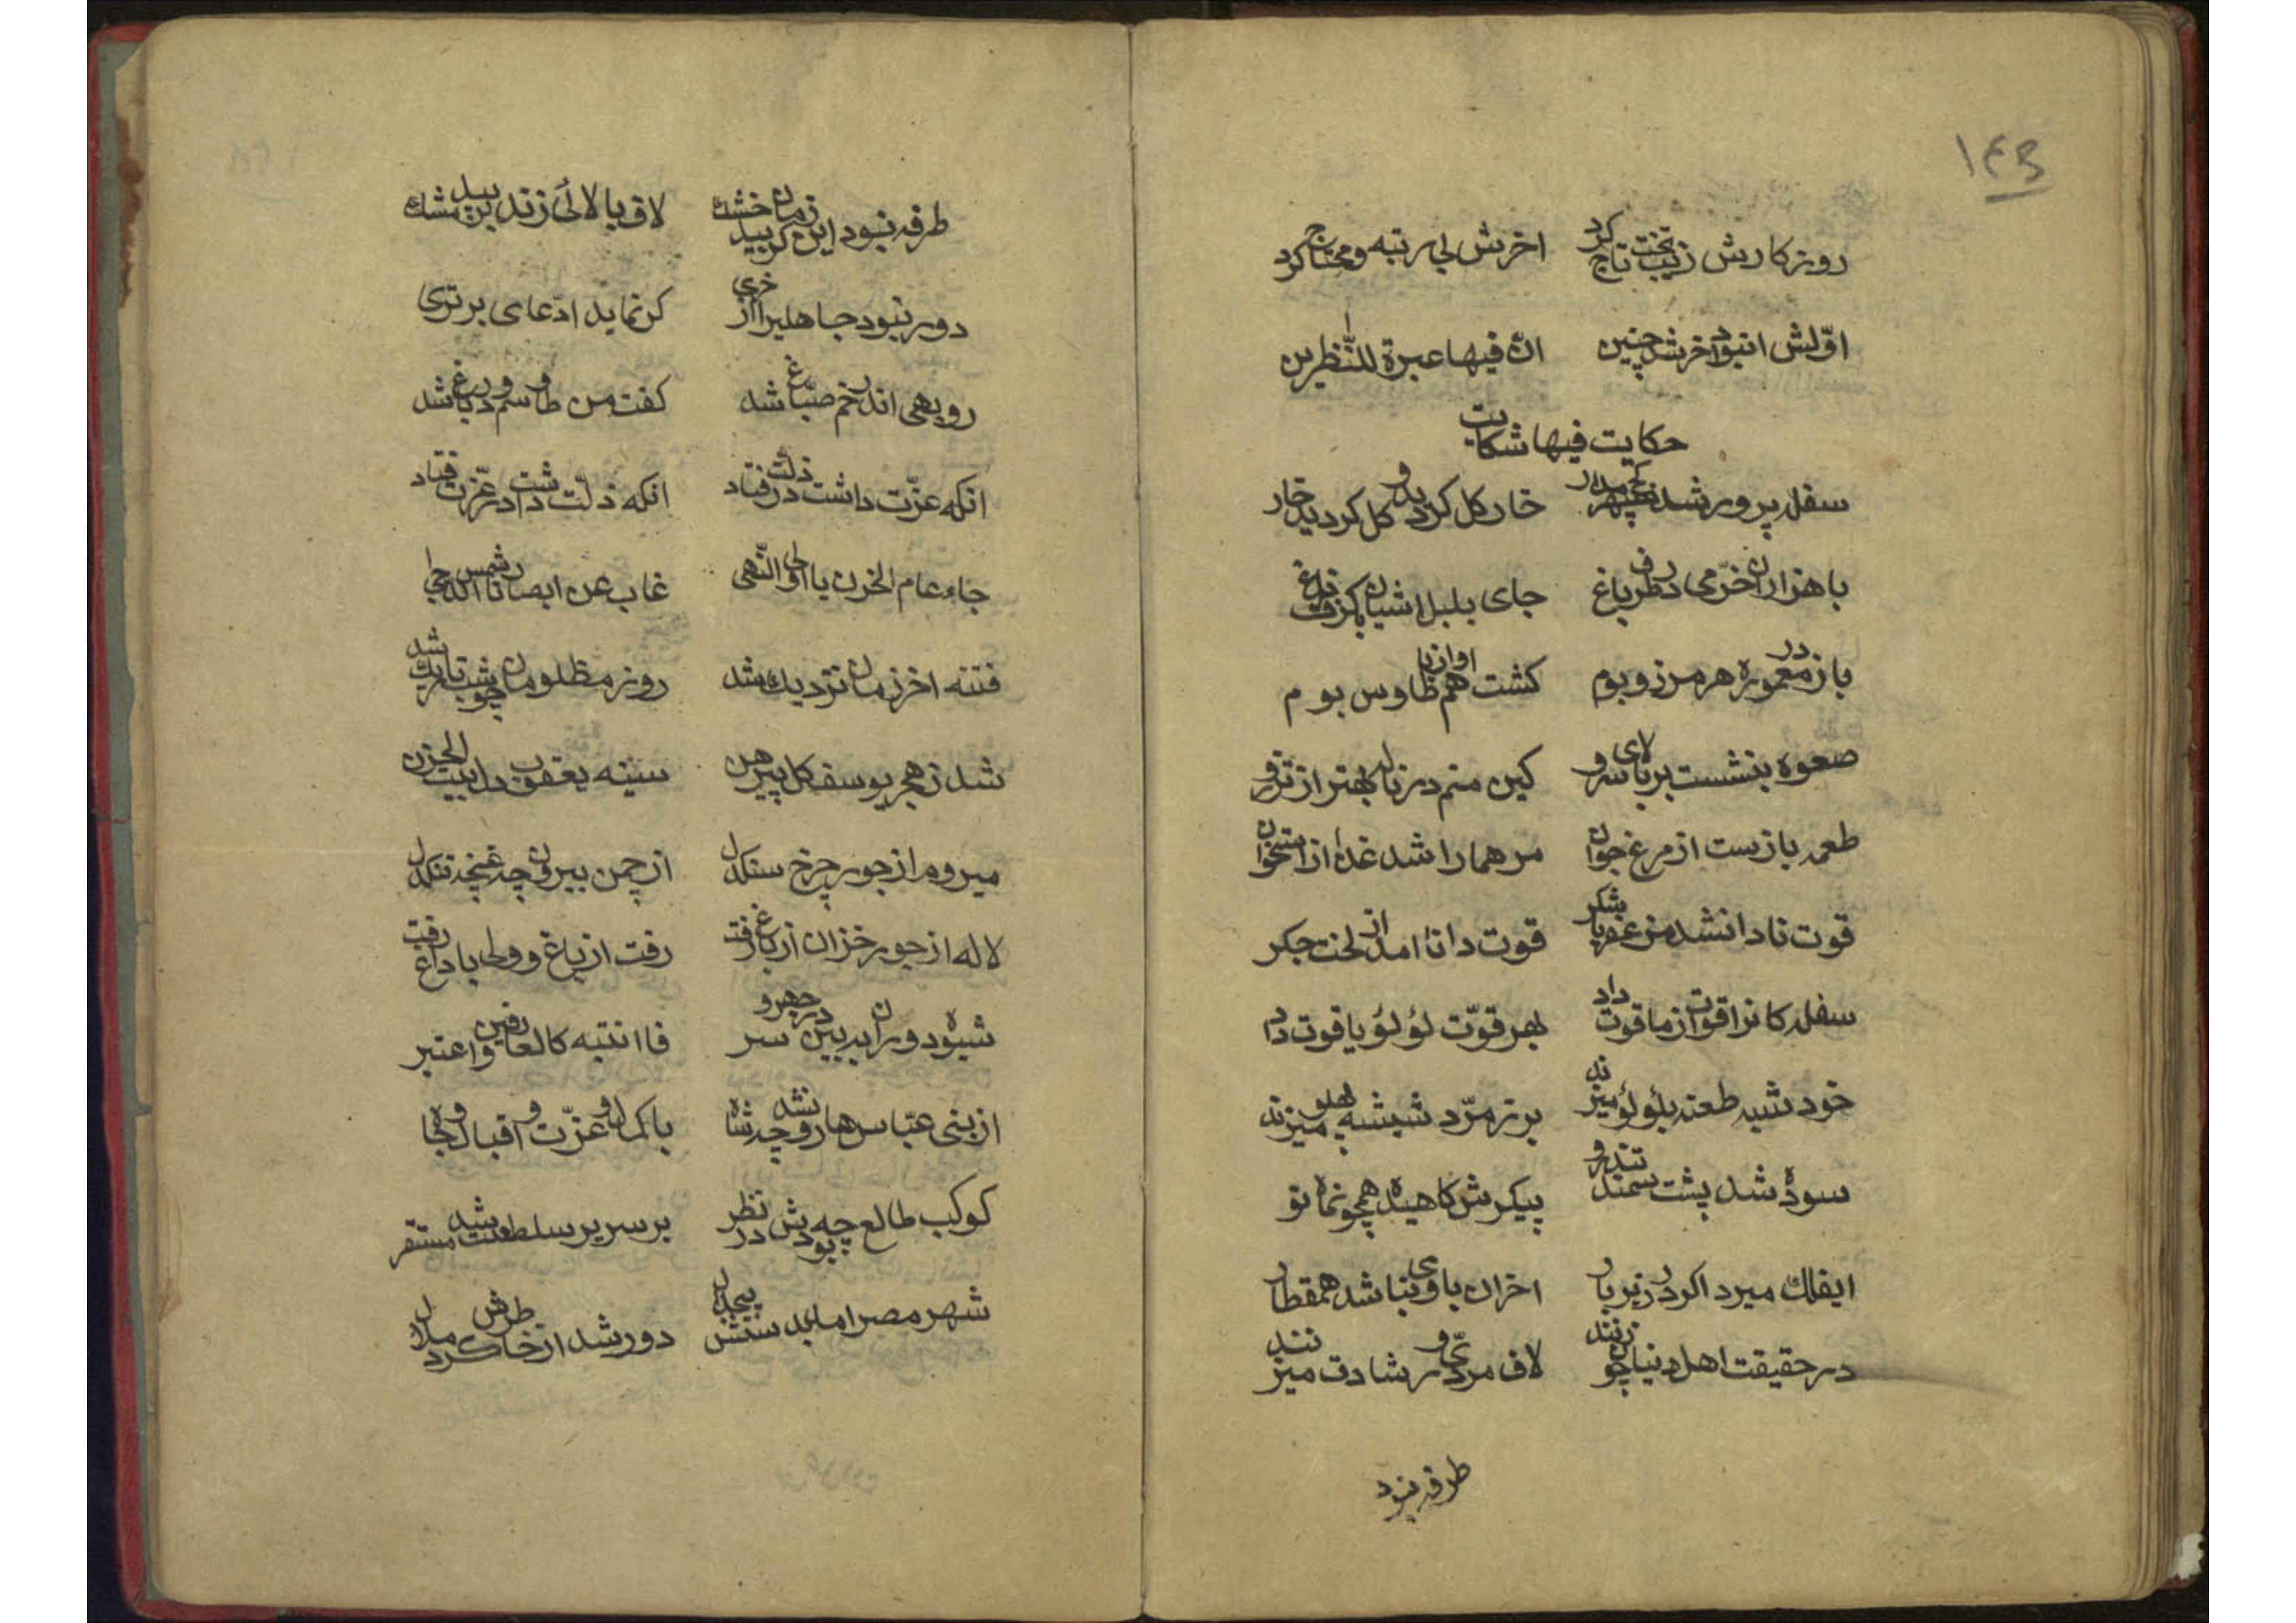 ۱۴۳
روزکارش زیب تخت تاج کرد اخرش بی رتبه و محتاج کرد
اوّلش انبود آخر شد چنین انّ فیها عبرة للنّٰظرین
حکایت فیها شکایت
سفله پرور شد سپهر کج مدار خار کل کردید و کل کردید خار
با هزاران خرّمی در طرف باغ جای بلبل اشیان بکرفت زاغ
باز در معموره هر مرز و بوم کشت هم اواز با طاوس بوم
صعوه بنشست بر بالای سرو کین منم در ناله بهتر از تزرو
طعمه بازست از مرغ جوان مر همارا شد غدا از استخوان
قوت نادانشد مزعفر با شکر قوت دانا امد از لخت جکر
سفله کانرا قوت از ماقوت داد بهر قوّت لؤلؤ یاقوت داد
خود شبه طعنه بلؤلؤ میزند بر زمرّد شیشه پهلو میزند
سوده شد پشت سمند تندرو پیکرش کاهیده همچو نماه نو
ایفلک میرد اکر در زیر بار اخران با وی نباشد همقطار
در حقیقت اهل دنیا چون زنند لاف مردی و رشادت میزنند
طرفه نبود
طرفه نبود این زمان کر بید خشک لاف بالائی زند بر بید مشک
دور نبود جاهلیرا از خری کر نماید ادّعای برتری
روبهی اندر خم صبّاغ شد کفت من طاوسم و در باغ شد
انکه عزّت داشت در ذلّت فتاد انکه ذلّت داشت در عزّت فتاد
جاء عام الحزن یا اولی النّهی غاب عن ابصارنا شمس الدجی
فتنه اخرزمان نزدیك شد روز مظلومان چو شب تاریك شد
شد ز هجر یوسف کل پیرهن سینه یعقوب دل بیت الحزن
میروم از جور چرخ سنکدل از چمن بیرون چه غنچه تنکدل
لاله از جور خزان از باغ رفت رفت از باغ و ولی با داغ رفت
شیوه دوران ببین در جهر و سر فاانتبه کالعارفین و اعتبر
از بنی عبّاس هارون چه شد شاه با کمال و عزّت و اقبال و جاه
کوکب طالع چه بودش در نظر بر سریر سلطنت شد مستقر
شهر مصر امد بدستش بیجدال دور شد از خاطرش کرد ملال